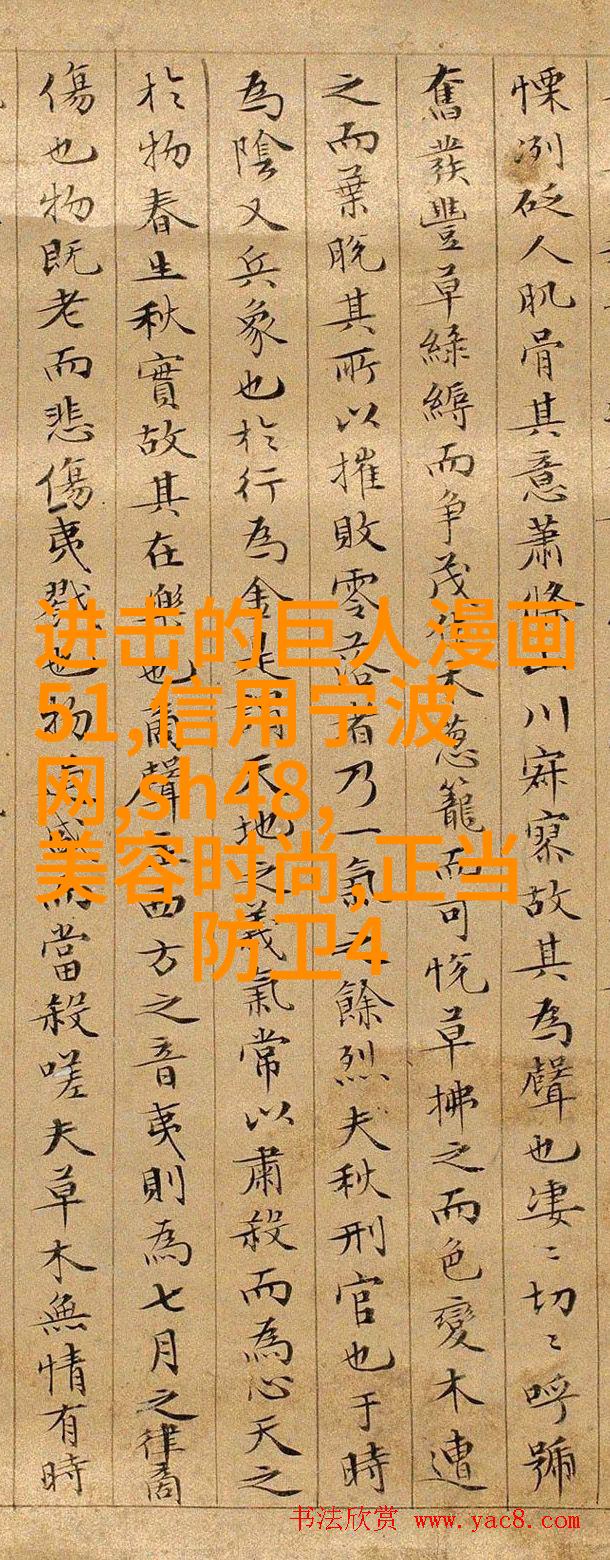 慄冽砭人肌骨其意蕭條山川寂寥故其為聲也淒〻切〻呼號
奮發豐草綠縟而爭茂佳木蔥籠而可悅草拂之而色變木遭
之而葉脫其所以摧敗零落者乃一氣之餘烈夫秋刑官也于時
為陰又兵象也於行為金是謂天地之義氣常以肅殺而為心天之
於物春生秋實故其在樂也商聲主西方之音夷則為七月之律商
傷也物既老而悲傷夷戮也物過盛而當殺嗟夫草木無情有時
进击的巨人漫画
51,信用宁波
网,sh48,
美容时尚,正当
防卫4
书法欣赏 www.yac8.com